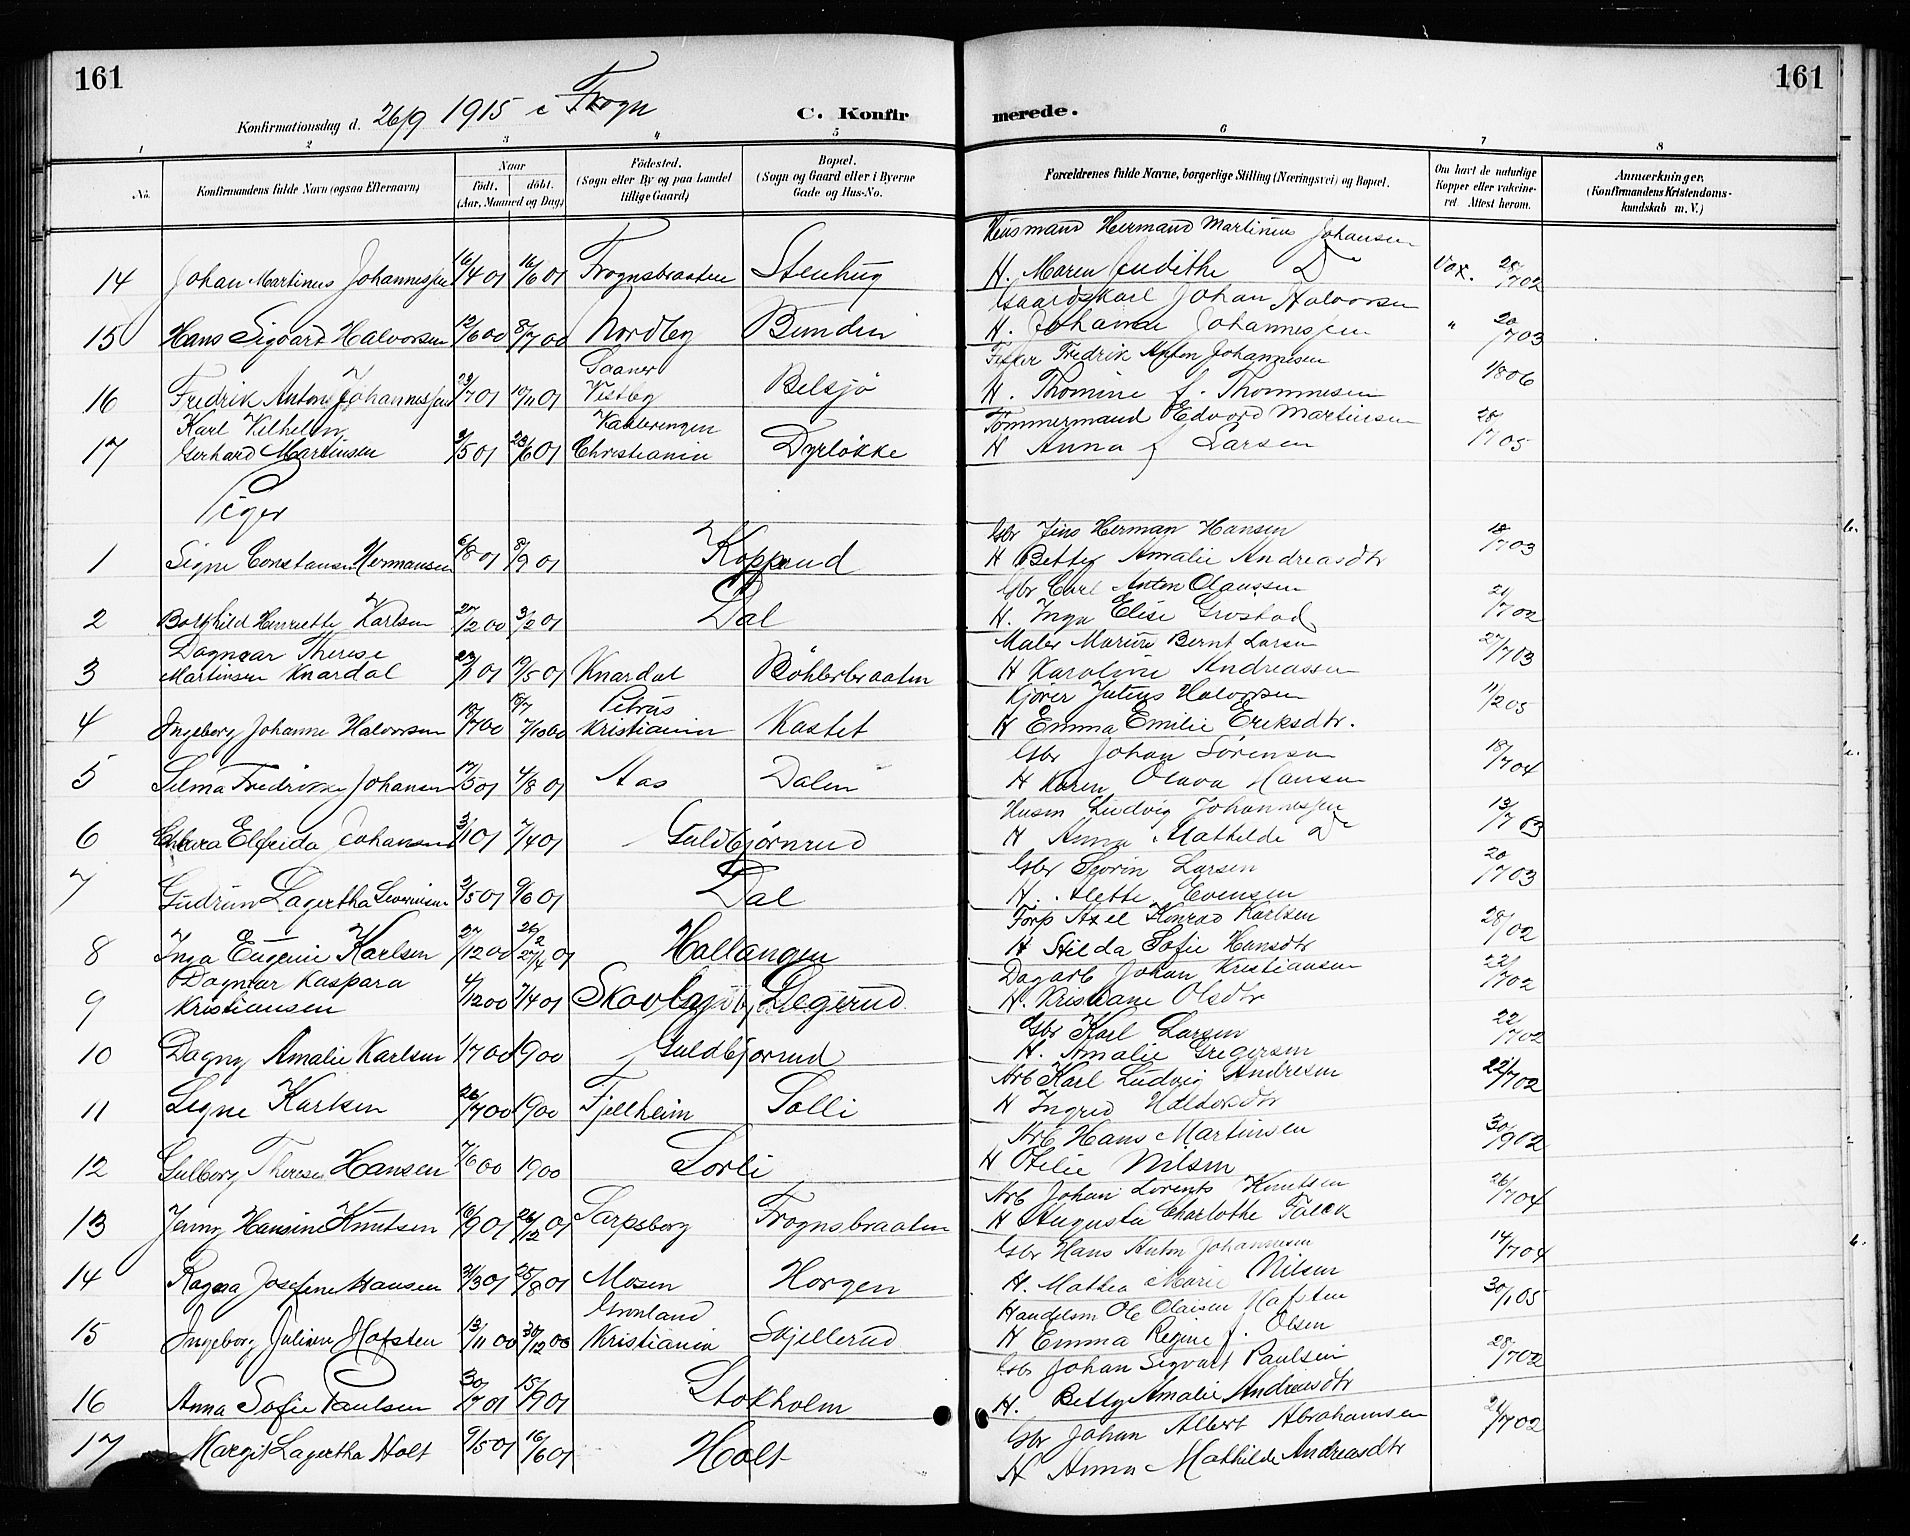 161
161
Konfirmationsdag d. 26/9 1915 i Frogn
C. Konfir merede.
1 2 3 4 5 6 7 8
No. Konfirmandens fulde Navn (ogsaa Efternavn) Naar født. døbt. (Aar, Maaned og Dag) Fødested. (Sogn eller By og paa Landet tillige Gaard) Bopæl. (Sogn og Gaard eller i Byerne Gade og Hus-No. Forældrenes fulde Navne, borgerlige Stilling (Næringsvei) og Bopæl. Om havt de naturlige Kopper eller vakcineret. Attest herom. Anmærkninger. (Konfirmandens Kristendomskundskab m. V.)
Husmand Hermand Martinus Johansen
14 Johan Martinus Johannessen 16/4 01 16/6 01 Frognsbraaten Stenhug H. Maren Judithe Do Vax. 28/7 02
Gaardskarl Johan Halvorsen
15 Hans Sigvard Halvorsen 12/6 00 8/7 00 Nordby Bunden H. Johanna Johannessen " 20/7 03
Saaner Fisker Fredrik Anton Johannesen
16 Fredrik Anton Johannessen 29/7 01 17/11 01 Vestby Belsjø H. Thomine f. Thommesen 1/8 06
Karl Vilhelm Vaalerengen Tømmermand Edvard Martinsen
17 Gerhard Martinsen 2/5 01 23/6 01 Christiania Dyrløkke H Anna f Larsen 28/7 05
Piger
Gbr Jens Herman Hansen
1 Signe Constanse Hermansen 6/8 01 8/9 01 Koppend H Betty Amalie Andreasdtr 18/7 03
Gbr Carl Anton Olaussen
2 Borghild Henriette Karlsen 27/12 00 3/2 01 Dal H. Inga Elise Grostad 21/7 02
Dagmar Therese Maler Marius Bernt Larsen
3 Martinsen Knardal 01 19/5 01 Knardal Bøhlerbraaten H Karoline Andreassen 27/7 03
Petrus Kjører Julius Halvorsen
4 Ingeborg Johanne Halvorsen 18/7 00 7/10 00 Kristiania Kastet H Emma Emilie Eriksdtr. 11/2 05
Gbr Johan Sørensen
5 Selma Fredrikke Johansen 17/5 01 4/8 01 Aas Dalen H Karen Olava Hansen 18/7 04
Husm Ludvig Johannessen
6 Elfrida Johansen 3/1 01 7/4 01 Guldbjørnrud H Anna Mathilde Do 13/7 03
Gbr Severin Larsen
7 Gudrun Lagertha Severinsen 3/5 01 9/6 01 Dal H. Alette Evensen 20/7 03
Forp Axel Konrad Karlsen
8 Inga Eugenie Karlsen 27/12 00 26/2 27/4 01 Hallangen H Hilda Sofie Hansdtr 28/7 02
Dagmar Kaspara Dagarb Johan Kristiansen
9 Kristiansen 4/12 00 7/4 01 Degerud H. Kristiane Olsdtr 22/7 02
Gbr Karl Larsen
10 Dagny Amalie Karlsen 1/7 00 1900 Guldbjørnrud H. Amalie Gregersen 22/7 02
Arb Karl Ludvig Andresen
11 Signe Karlsen 26/7 00 1900 Fjellheim Solli H Ingrid 22/7 02
Arb Hans Martinsen
12 Gulborg Therese Hansen 7/6 00 1900 Torli H Otilie Nilsen 30/9 02
Arb Johan Lorents Knutsen
13 Jenny Hansine Knutsen 16/9 01 26/12 01 Sarpsborg Frognsbraaten H Augusta Charlothe Falck 26/7 04
Gbr Hans Anton Johannesen
14 Ragna Josefine Hansen 31/3 01 25/8 01 Mosen Horgen H. Mathea Marie Nilsen 14/7 04
Grønland Handelsm Ole Olaisen Hafsten
15 Ingeborg Juliane Hafsten 13/11 00 30/12 00 Kristiania Skjellerud H Emma Regine f. Olsen 30/1 05
Gbr Johan Sigvart Paulsen
16 Anna Sofie Paulsen 30/7 01 15/9 01 Stokholm H. Betty Amalie Andreasdtr 28/7 02
Gbr Johan Albert Abrahamsen
17 Margit Lagertha Holt 9/5 01 16/6 01 Holt H Anna Mathilde Andreasdtr 21/7 02